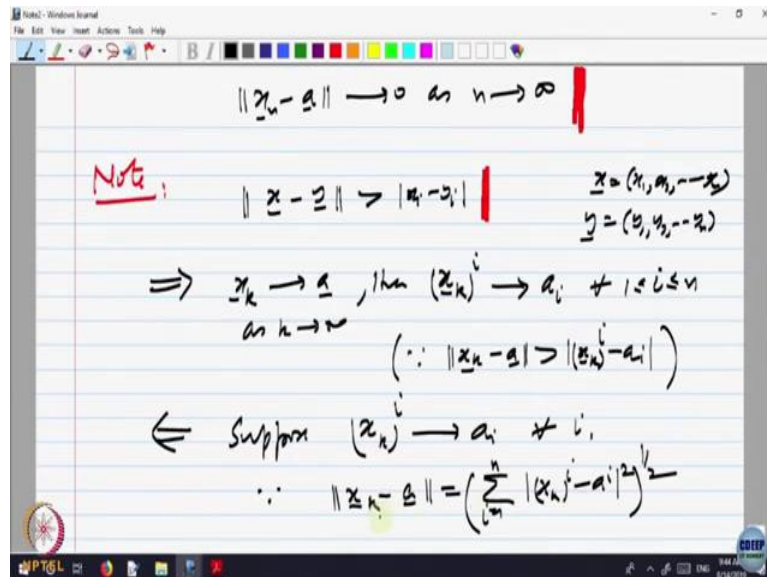 Note2 - Windows Journal
File Edit View Insert Actions Tools Help
B I
‖x̲ₙ - a̲‖ → 0 as n → ∞
Note:
‖x̲ - y̲‖ > |xᵢ - yᵢ|
x̲ = (x₁, x₂, --- xₙ)
y̲ = (y₁, y₂, --- yₙ)
⇒ x̲ₖ → a̲, then (x̲ₖ)ⁱ → aᵢ ∀ 1 ≤ i ≤ n
as k → ∞
(∵ ‖x̲ₖ - a̲‖ > |(x̲ₖ)ⁱ - aᵢ|)
⇐ Suppose (x̲ₖ)ⁱ → aᵢ ∀ i.
∵ ‖x̲ₖ - a̲‖ = (∑ⁿᵢ₌₁ |(x̲ₖ)ⁱ - aⁱ|²)^½
NPTEL
CDEEP
ENG